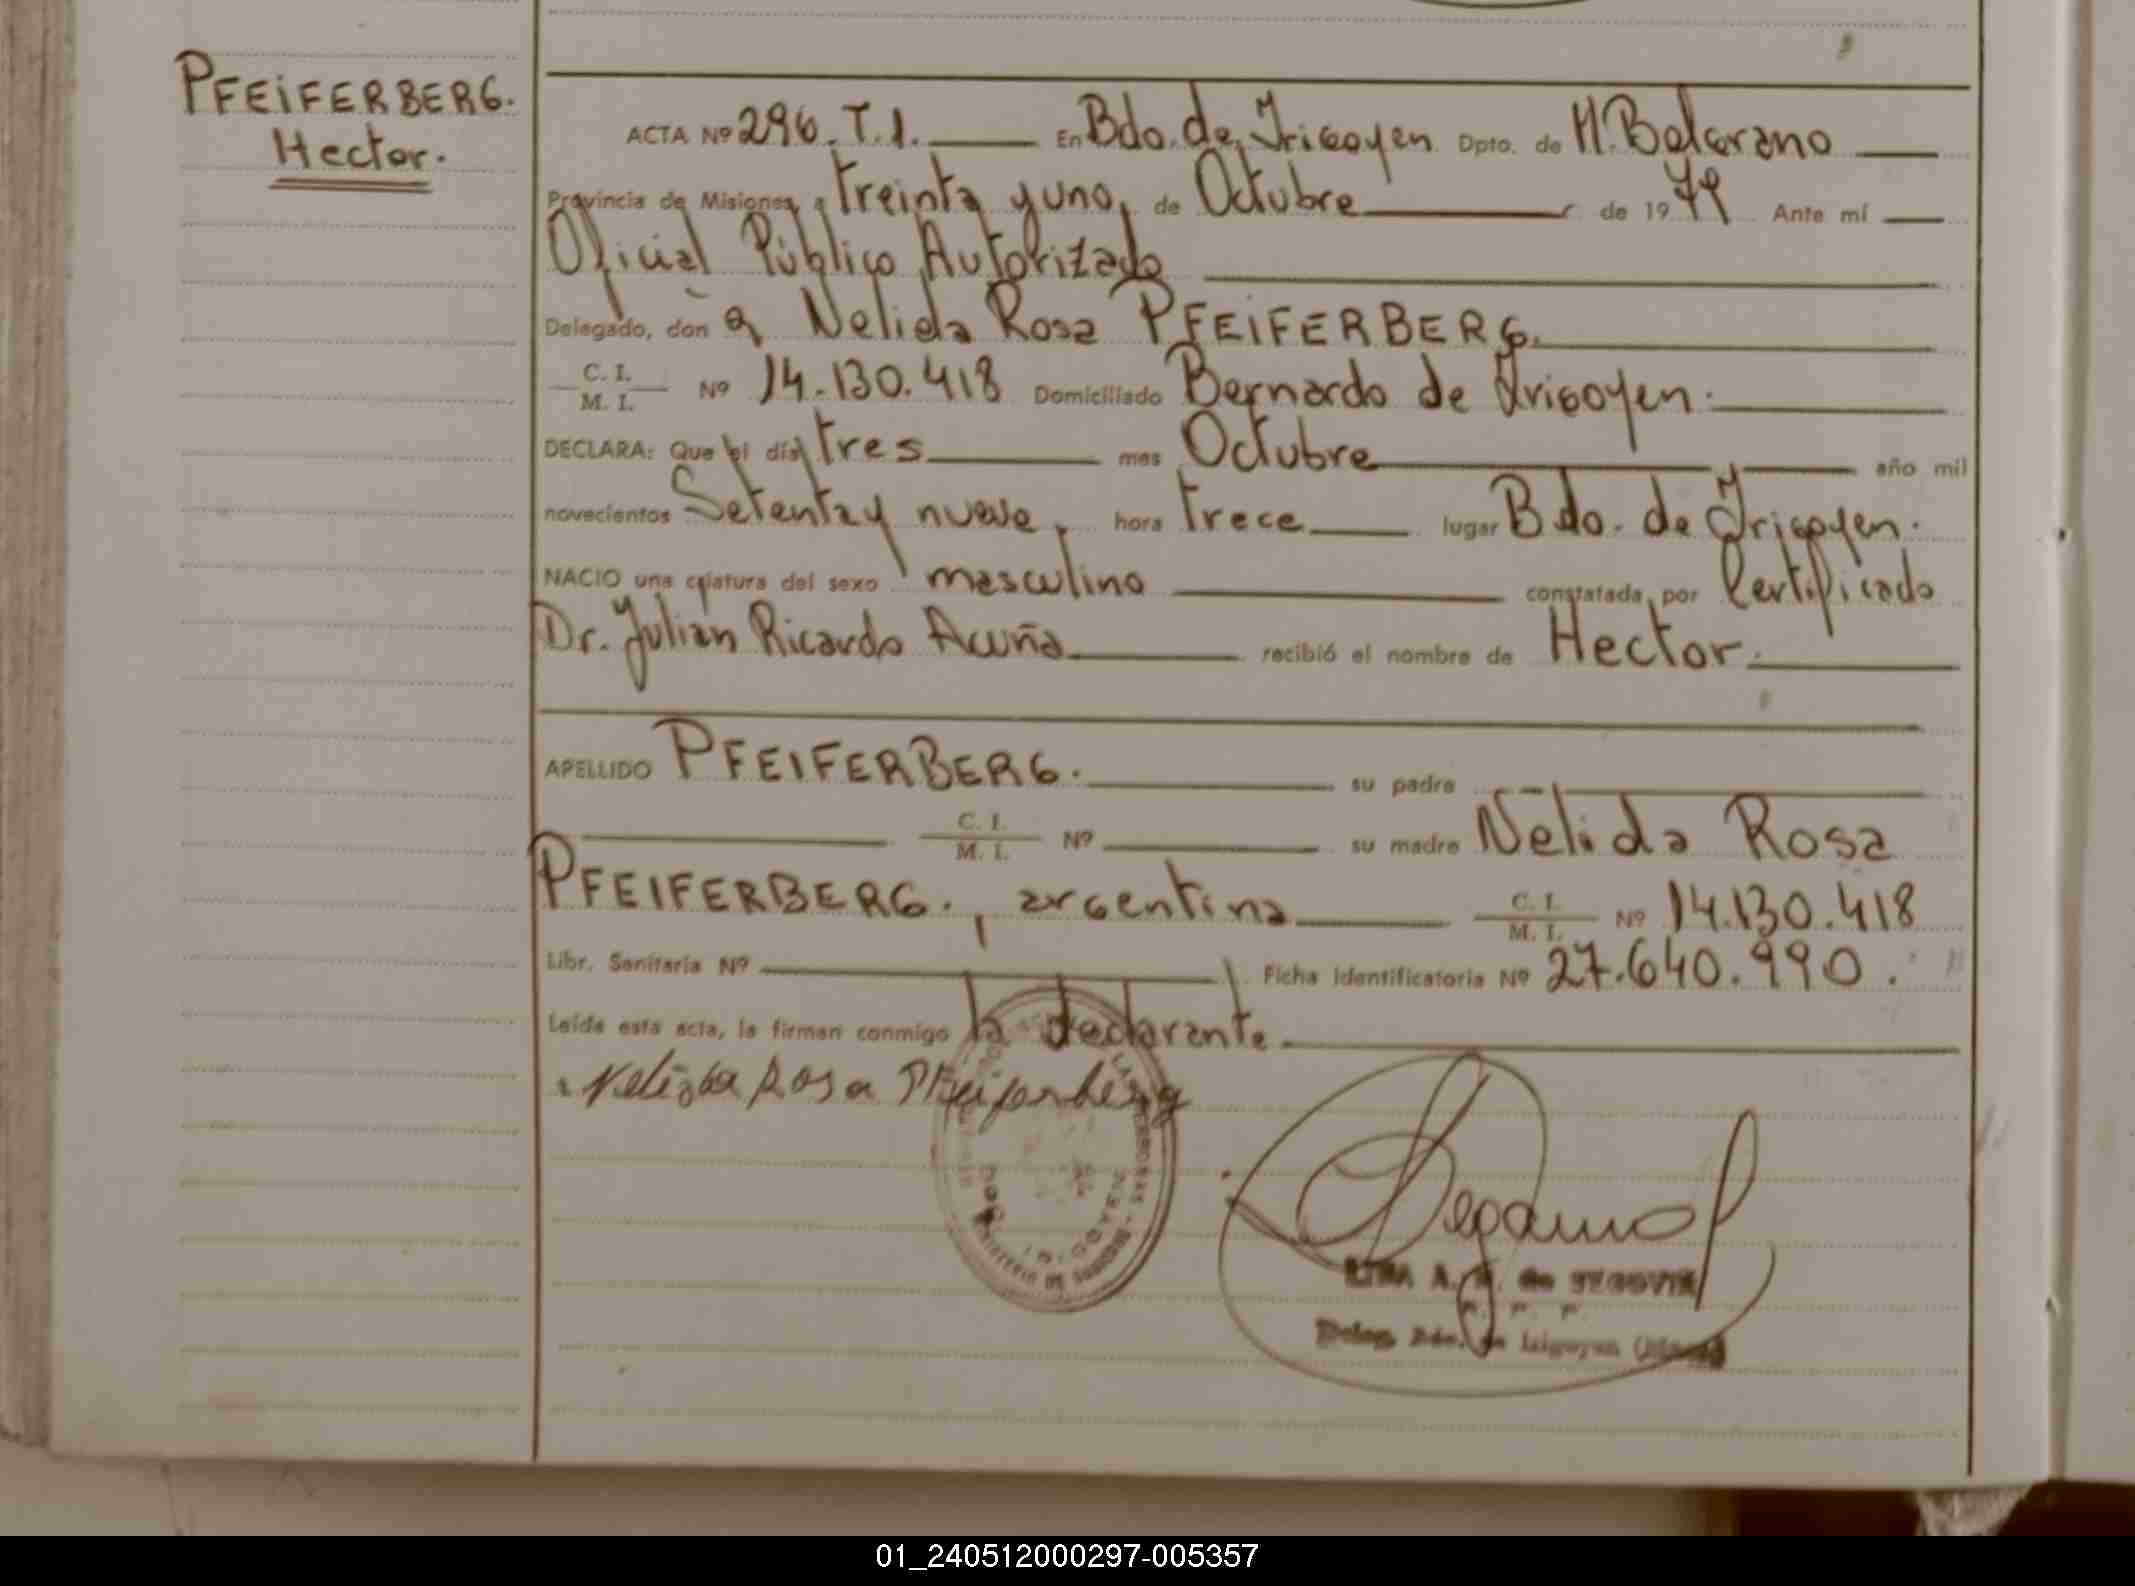 PFEIFERBERG.
Hector.
ACTA Nº 296. T.I. En Bdo. de Irigoyen Dpto. de M. Belgrano
Provincia de Misiones, a treinta y uno, de Octubre de 19 79 Ante mí
Oficial Público Autorizado
Delegado, don a Nelida Rosa PFEIFERBERG.
C. I.
M. I. Nº 14.130.418 Domiciliado Bernardo de Irigoyen.
DECLARA: Que el día tres mes Octubre año mil
novecientos Setenta y nueve, hora trece lugar Bdo. de Irigoyen.
NACIO una criatura del sexo masculino constatada por Certificado
Dr. Julian Ricardo Acuña recibió el nombre de Hector.
APELLIDO PFEIFERBERG. su padre
C. I.
M. I. Nº su madre Nelida Rosa
PFEIFERBERG., argentina C. I.
M. I. Nº 14.130.418
Libr. Sanitaria Nº Ficha Identificatoria Nº 27.640.990.
Leída esta acta, la firman conmigo la declarante
Nelida Rosa Pfeiferberg
01_240512000297-005357